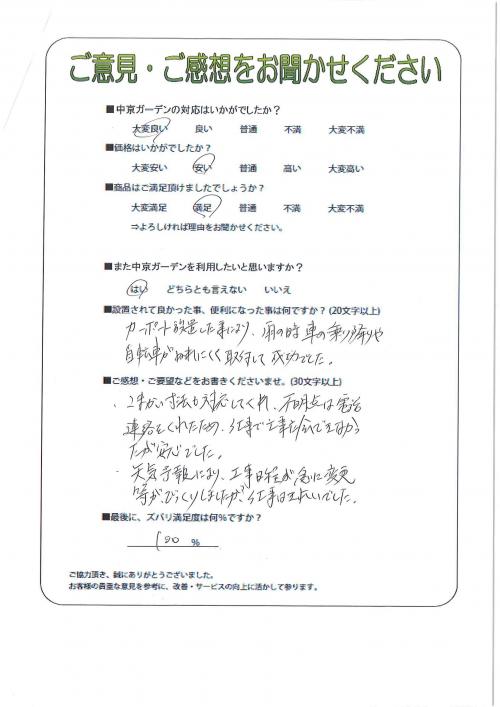 ご意見・ご感想をお聞かせください
■中京ガーデンの対応はいかがでしたか？
大変良い 良い 普通 不満 大変不満
■価格はいかがでしたか？
大変安い 安い 普通 高い 大変高い
■商品はご満足頂けましたでしょうか？
大変満足 満足 普通 不満 大変不満
⇒よろしければ理由をお聞かせください。
■また中京ガーデンを利用したいと思いますか？
はい どちらとも言えない いいえ
■設置されて良かった事、便利になった事は何ですか？(20文字以上)
カーポート設置した事により、雨の時車の乗り降りや
自転車がぬれにくく取付して成功でした。
■ご感想・ご要望などをお書きくださいませ。(30文字以上)
・ 寸法も対応してくれ、不明点は電話
連絡をくれたため、仕事で立ち会えて
安心でした。
・天気予報により、工事日程が急に変更
等がびっくりしましたが、仕事はきれいでした。
■最後に、ズバリ満足度は何％ですか？
100 ％
ご協力頂き、誠にありがとうございました。
お客様の貴重な意見を参考に、改善・サービスの向上に活かして参ります。